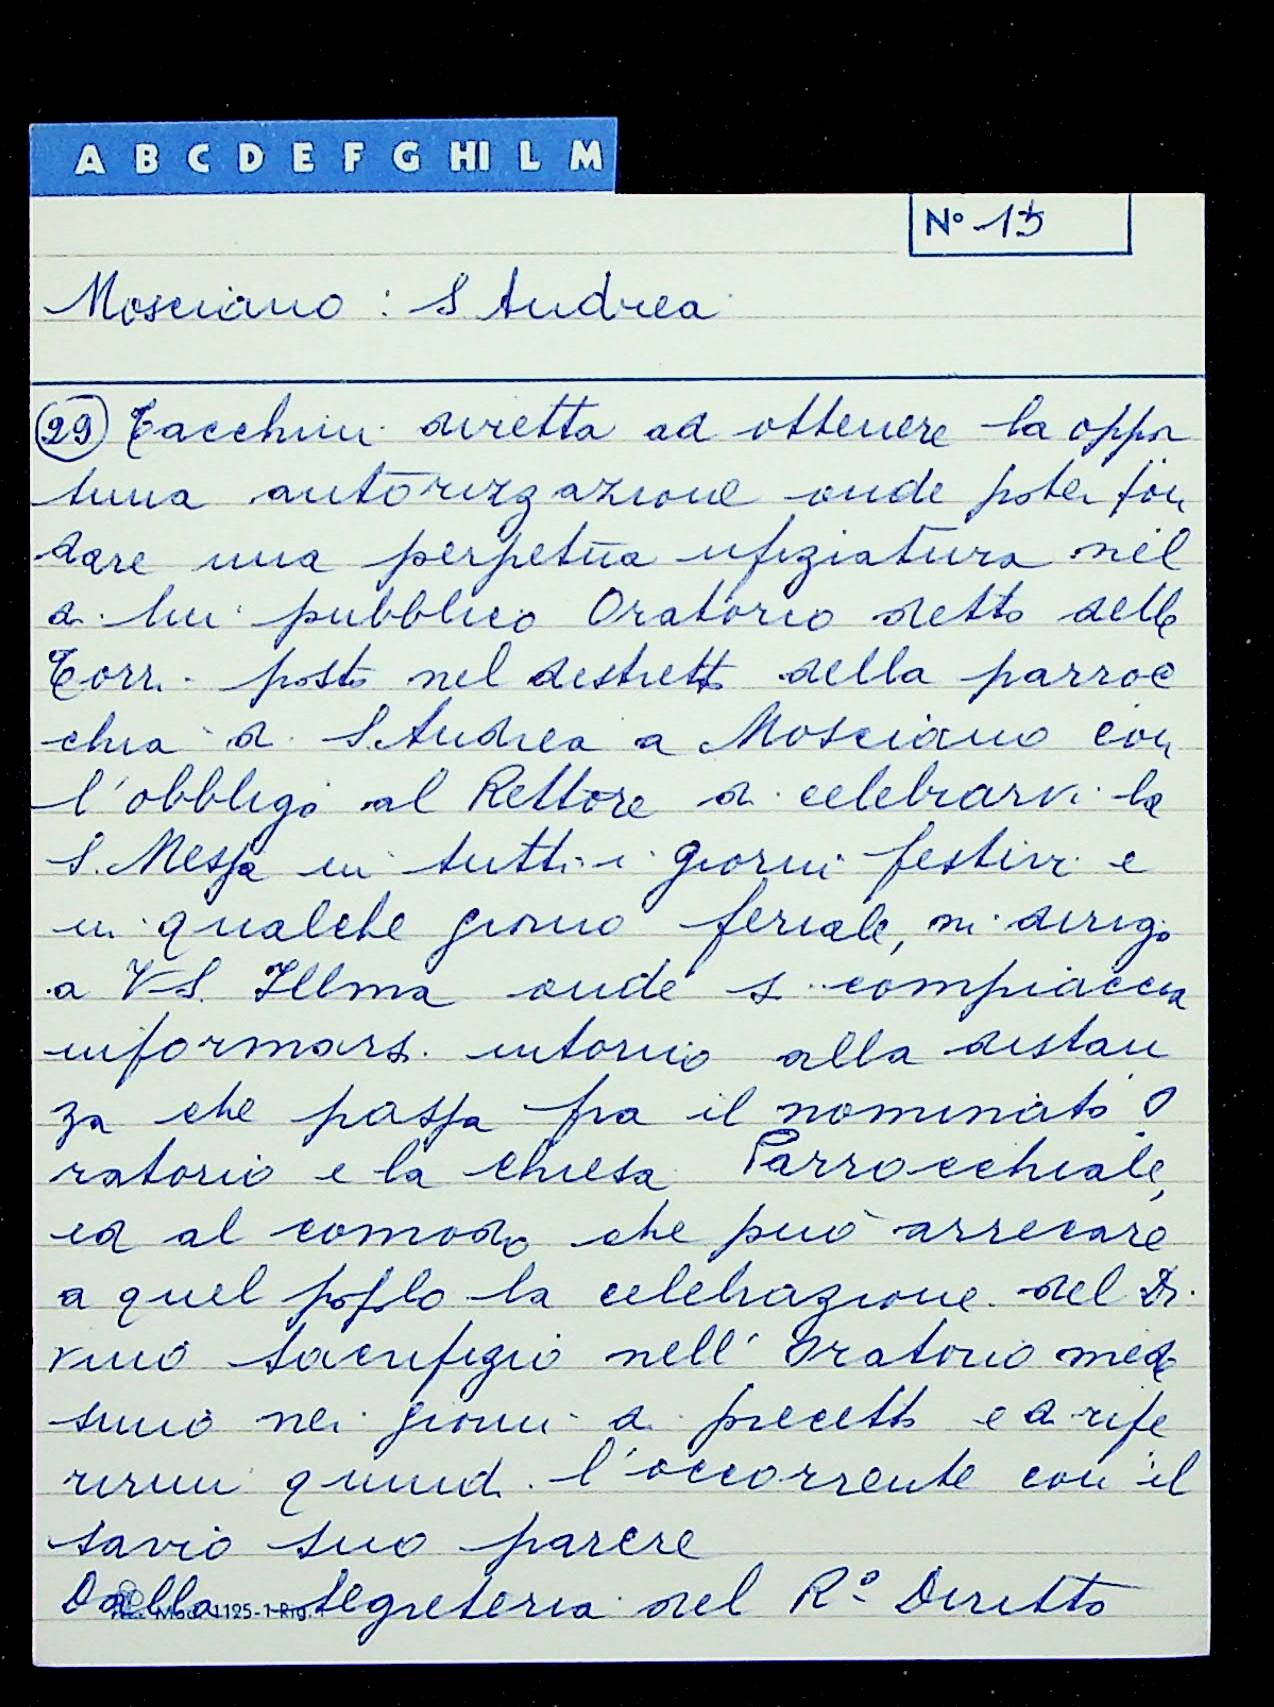 A B C D E F G HI L M
Nº 15
Mosciano : S Andrea
29 Tacchini diretta ad ottenere la oppor
tuna autorizzazione onde poter fon
dare una perpetua ufiziatura nel
di lui pubblico Oratorio detto delle
Torri posto nel destretto della parroc
chia di S. Andrea a Mosciano con
l'obbligo al Rettore di celebrarvi la
S. Messa in tutti i giorni festivi e
in qualche giorno feriale, mi dirigo
a VS. Illma onde si compiaccia
informarsi intorno alla distan
za che passa fra il nominato O
ratorio e la chiesa Parrocchiale,
ed al comodo che può arrecare
a quel popolo la celebrazione del Di
vino sacrifizio nell' Oratorio mede
simo nei giorni di precetto e di rife
rirmi quindi l'occorrente con il
savio suo parere
Dalla Segreteria del Rº Diritto
Mod. 1125-1-Rig.